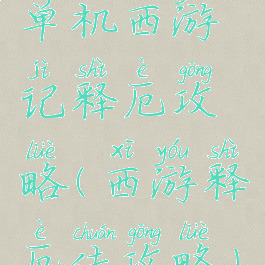 单机西游
jì shì è gōng
记释厄攻
lüè xī yóu shì
略(西游释
è chuán gōng lüè
厄传攻略)